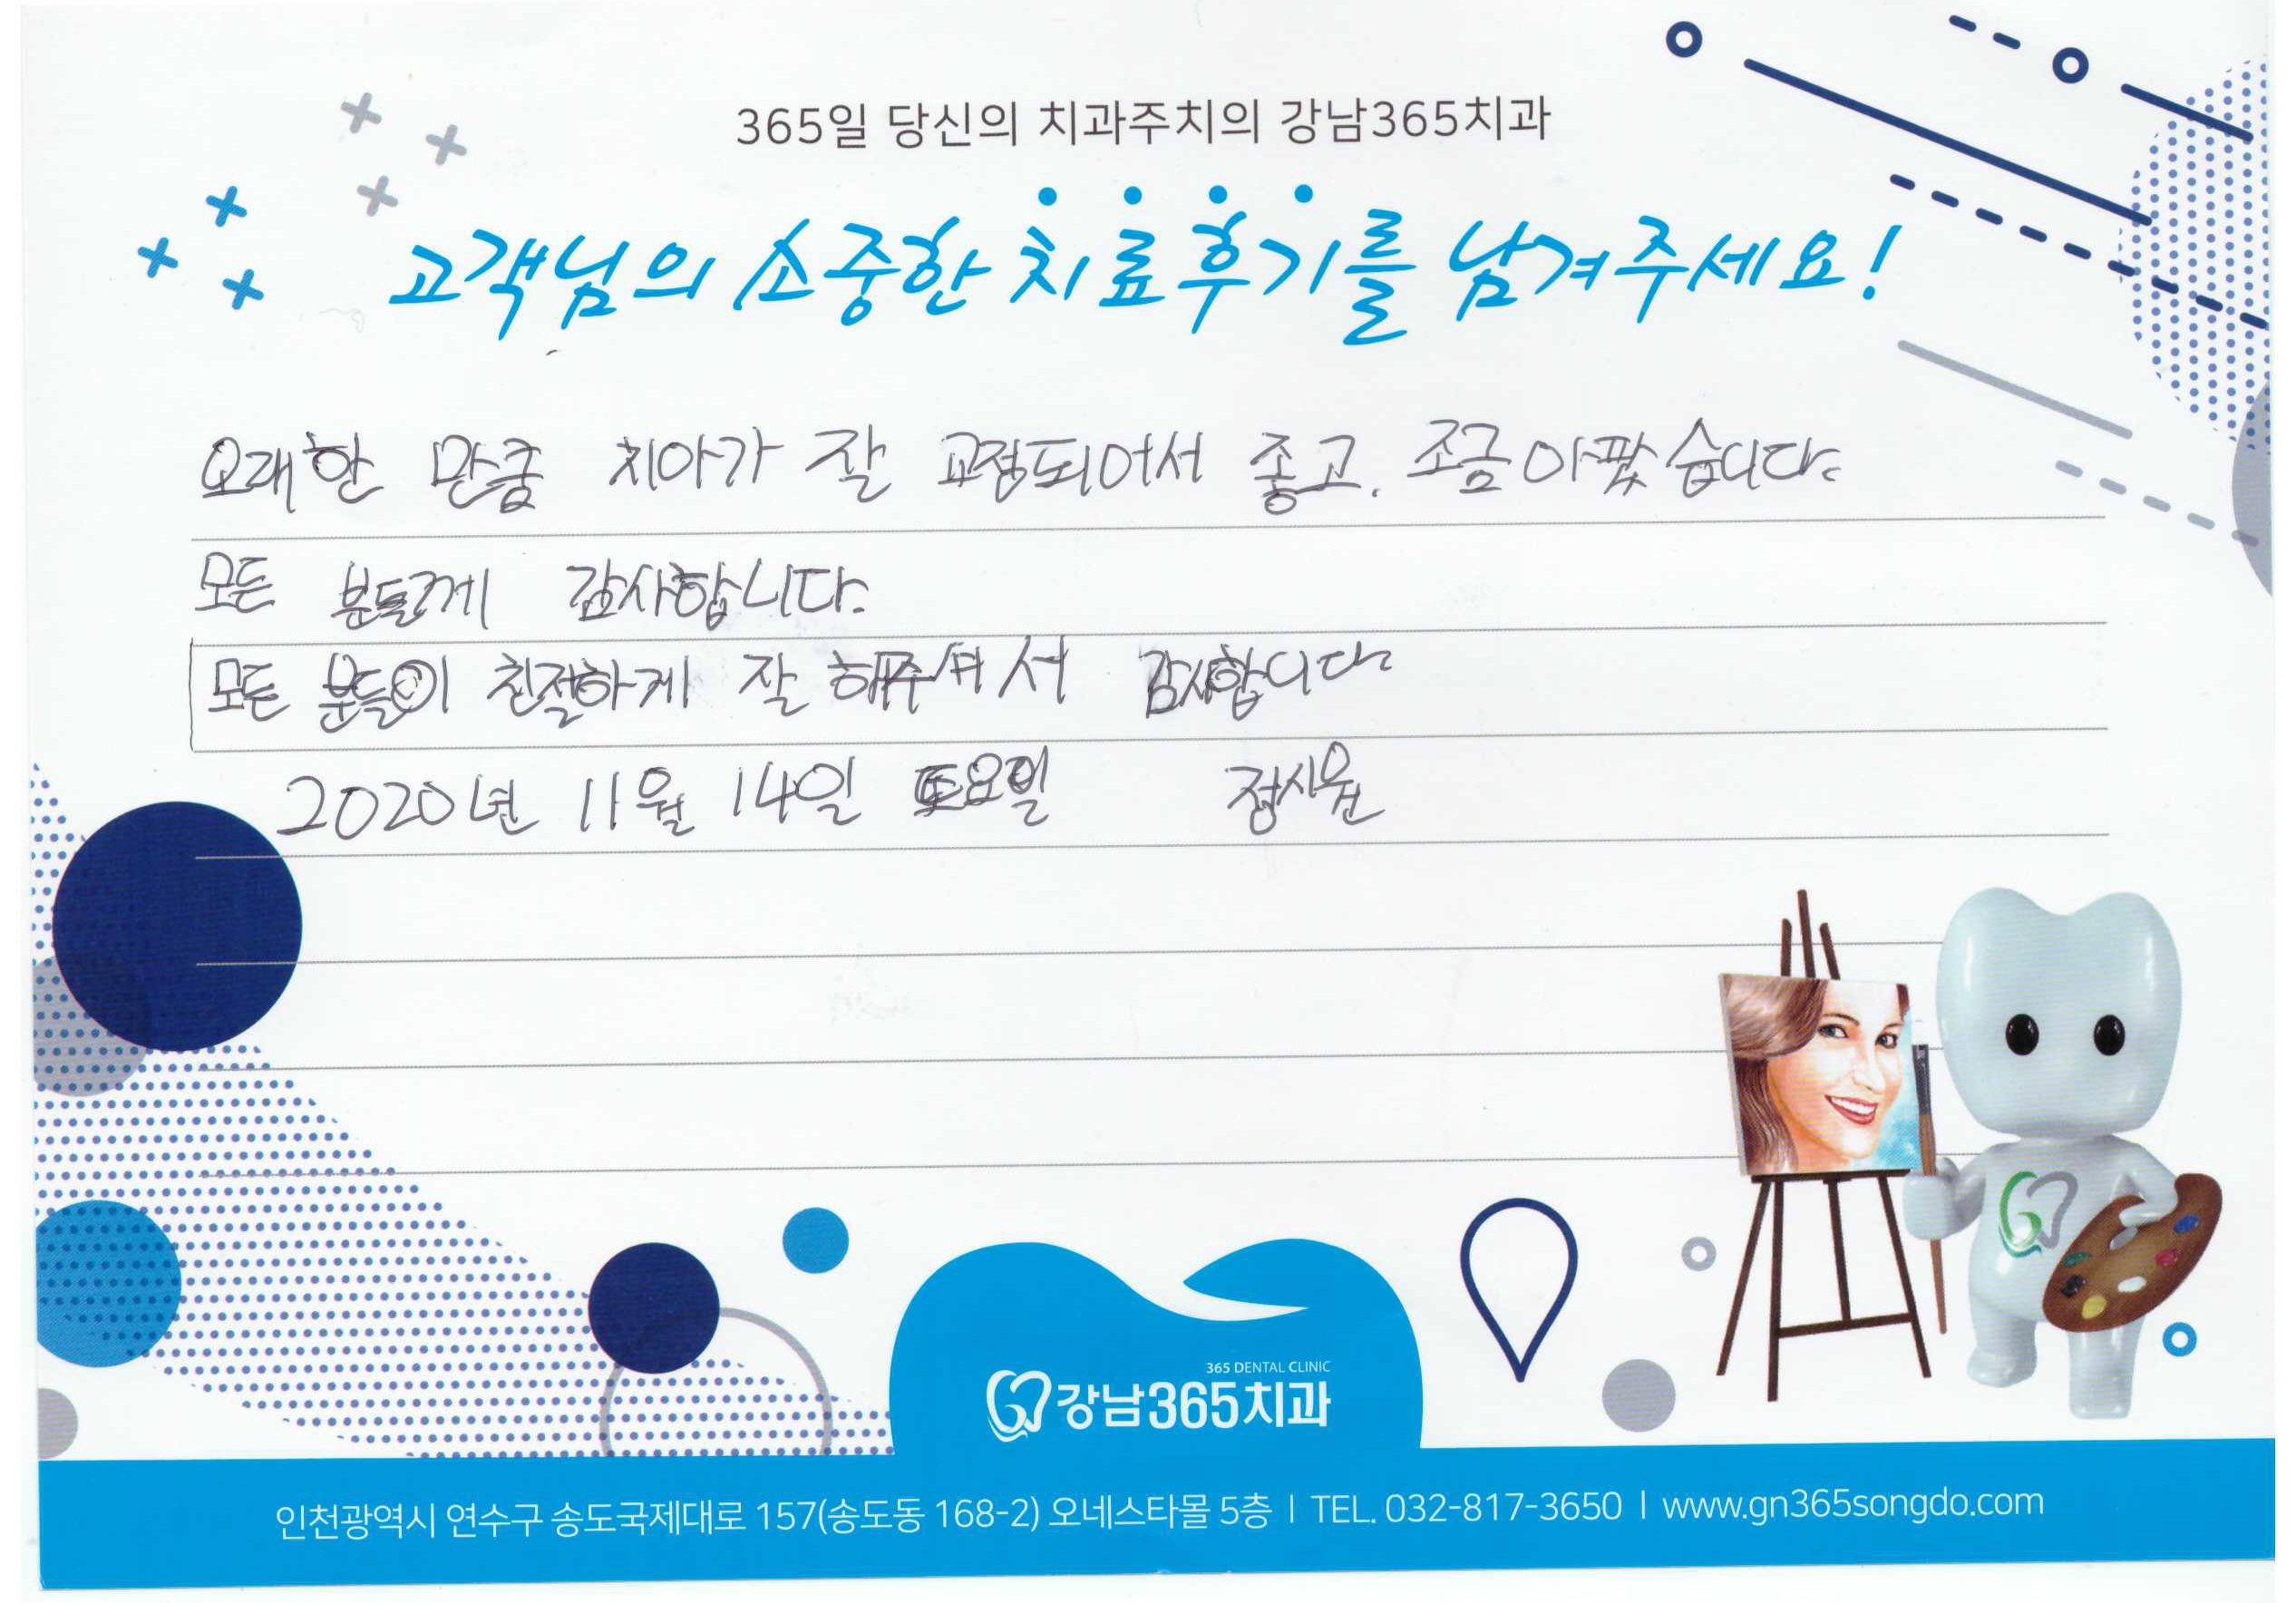 365일 당신의 치과주치의 강남365치과
고객님의 소중한 치료후기를 남겨주세요!
오래한 만큼 치아가 잘 교정되어서 좋고, 조금 아팠습니다.
모든 분들께 감사합니다.
모든 분들이 친절하게 잘 해주셔서 감사합니다
2020년 11월 14일 토요일 정시윤
365 DENTAL CLINIC
강남365치과
인천광역시 연수구 송도국제대로 157(송도동 168-2) 오네스타몰 5층 | TEL. 032-817-3650 | www.gn365songdo.com